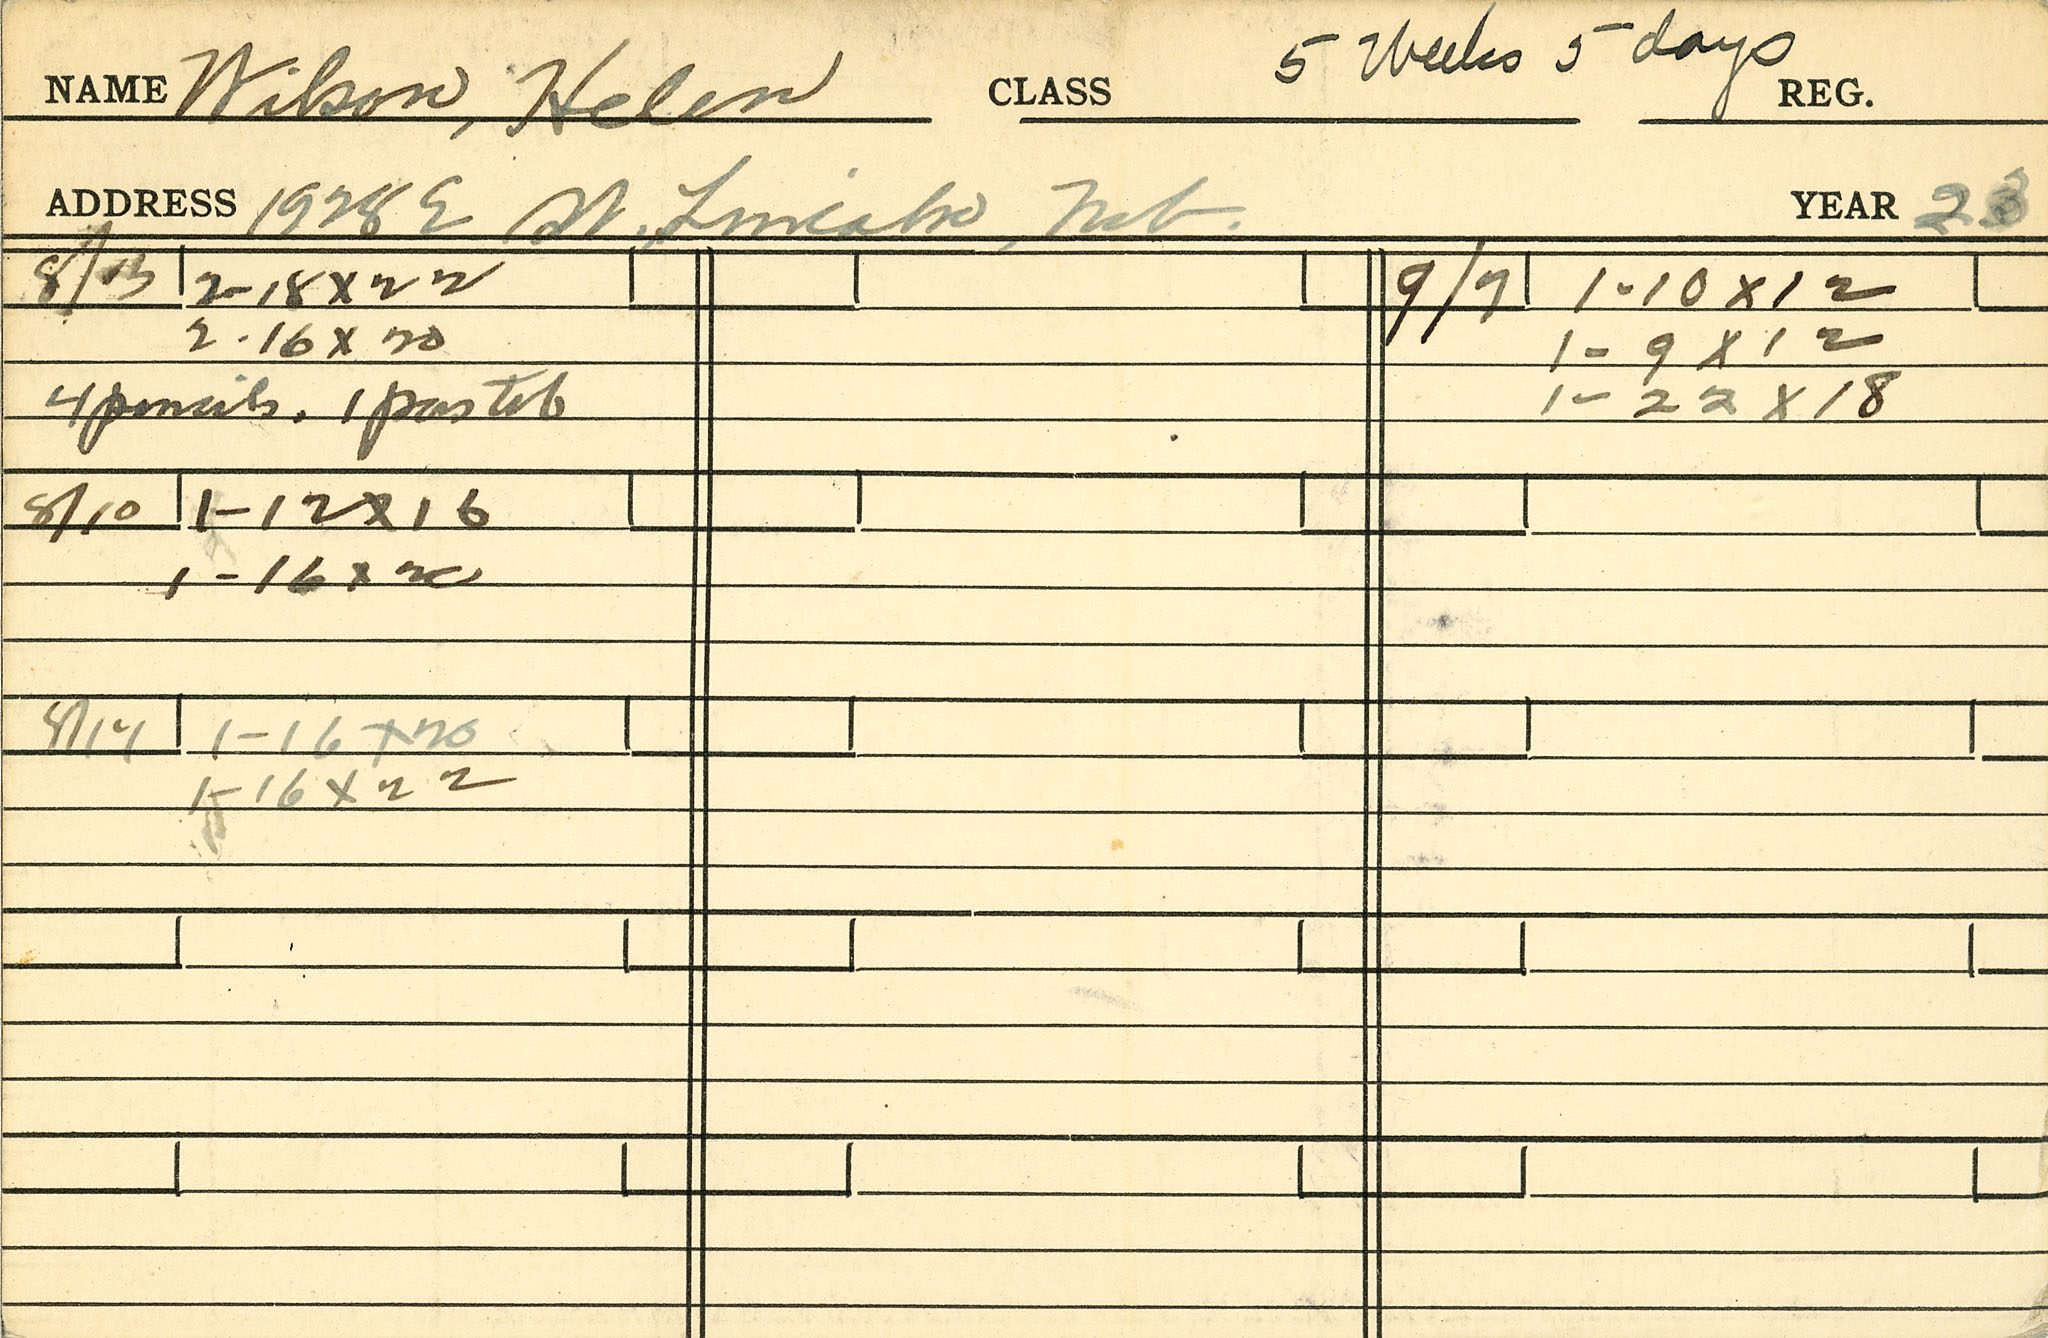 5 Weeks 5 days
NAME Wilson, Helen CLASS REG.
ADDRESS 1928 E St. Lincoln, Neb. YEAR 23
8/13 2-18x22
2-16x20
4 pencils, 1 pastel
8/10 1-12x16
1-16x20
8/14 1-16x20
1-16x22
9/9 1-10x12
1-9x12
1-22x18